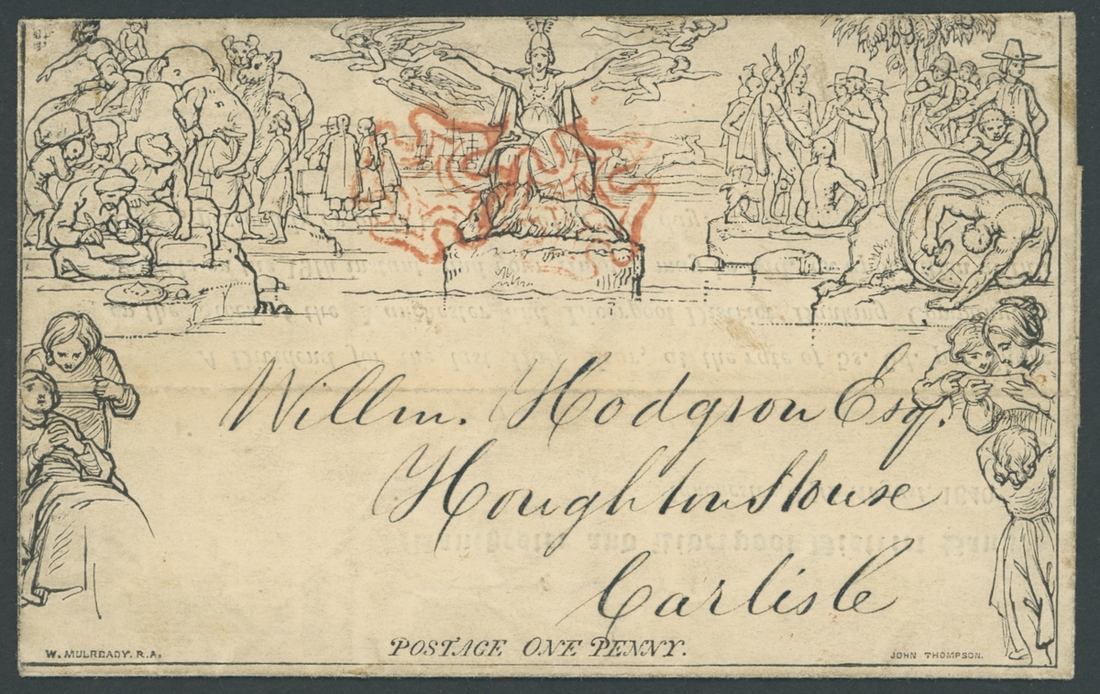 Willm. Hodgson Esq.
Houghton House
Carlisle
POSTAGE ONE PENNY.
W. MULREADY. R.A.
JOHN THOMPSON.